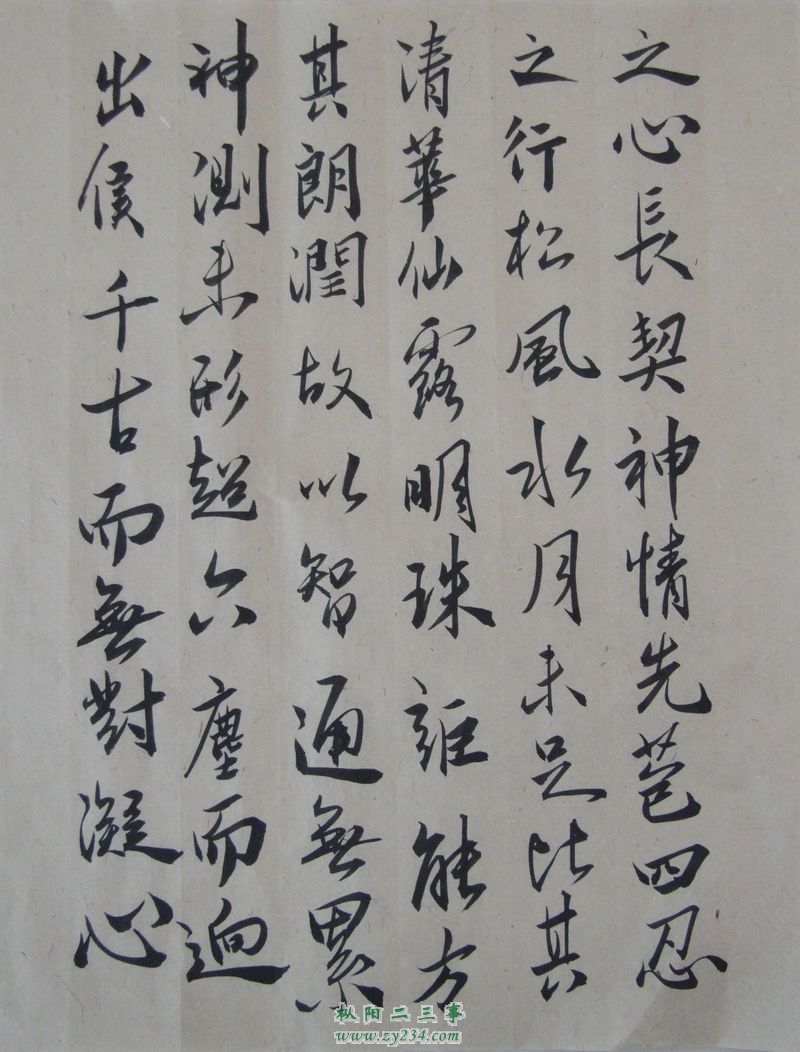 之心長契神情先苞四忍
之行松風水月未足比其
清華仙露明珠詎能方
其朗潤故以智通無累
神測未形超六塵而迥
出隻千古而無對凝心
枞阳二三事
www.zy234.com